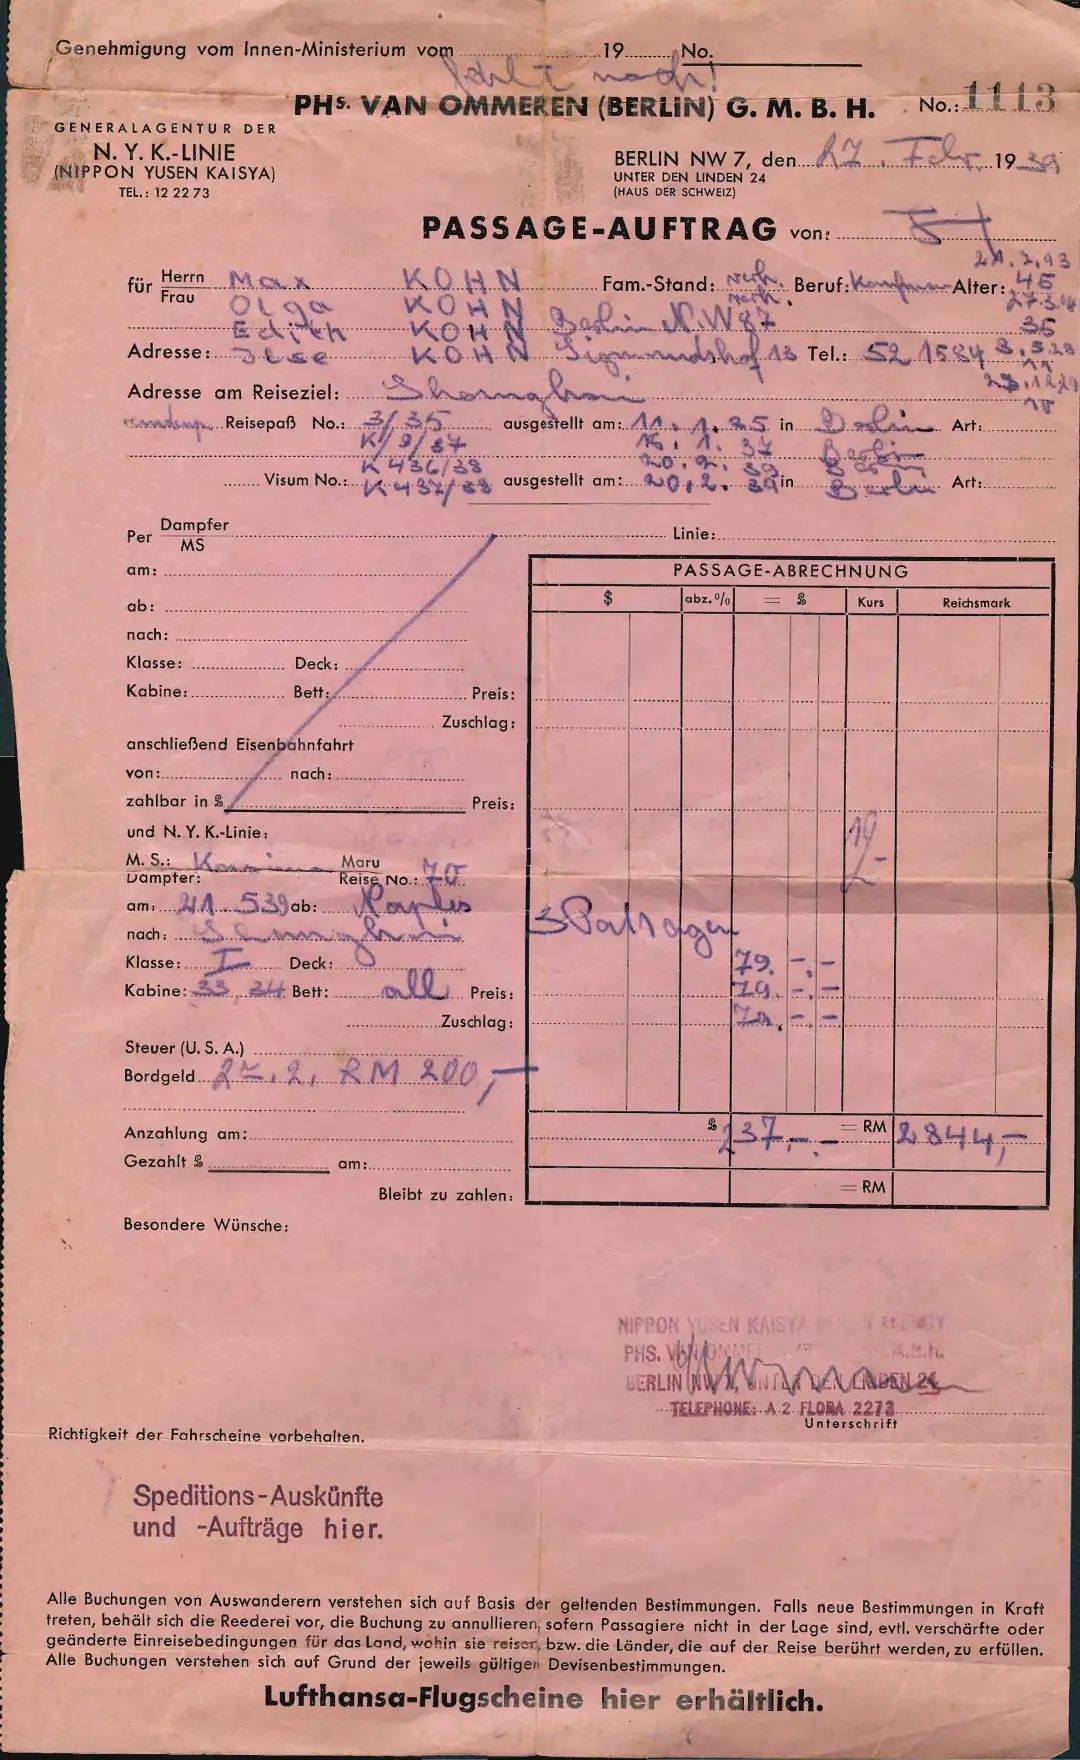 Genehmigung vom Innen-Ministerium vom 19 No.
nach!
PHS. VAN OMMEREN (BERLIN) G. M. B. H. No.: 1113
GENERALAGENTUR DER
N. Y. K.-LINIE
(NIPPON YUSEN KAISYA)
TEL.: 12 22 73
BERLIN NW 7, den 27. Febr. 1939
UNTER DEN LINDEN 24
(HAUS DER SCHWEIZ)
PASSAGE-AUFTRAG von:
für Herrn Frau Max KOHN Fam.-Stand: verh. Beruf: Kaufmann Alter: 45
Olga KOHN verh.
Edith KOHN Berlin N.W87 35
Adresse: Ilse KOHN Sigmundshof 13 Tel.: 52 1584
Adresse am Reiseziel: Shanghai
Reisepaß No.: 3/35 ausgestellt am: 11. 1. 35 in Berlin Art:
K/9/37 16. 1. 37 Berlin
K 436/38 20. 2. 39 Berlin
Visum No.: K 437/38 ausgestellt am: 20. 2. 39 in Berlin Art:
Per Dampfer MS Linie:
am:
ab:
nach:
Klasse: Deck:
Kabine: Bett: Preis:
Zuschlag:
anschließend Eisenbahnfahrt
von: nach:
zahlbar in £ Preis:
und N. Y. K.-Linie:
M. S.: Dampfer: Maru Reise No.: 70
am: 21. 5 39 ab: Naples
nach: Shanghai
Klasse: I Deck:
Kabine: 33, 34 Bett: all Preis:
Zuschlag:
Steuer (U. S. A.)
Bordgeld 27. 2. RM 200,-
Anzahlung am:
Gezahlt £ am:
Bleibt zu zahlen:
Besondere Wünsche:
PASSAGE-ABRECHNUNG
$ abz. % = £ Kurs Reichsmark
3 Passagen
79. -.-
79. -.-
79. -.-
£ 237,-.- = RM 2844,-
= RM
NIPPON YUSEN KAISYA BERLIN AGENCY
PHS. VAN OMMEREN
BERLIN NW 7, UNTER DEN LINDEN 24
TELEPHONE: A 2 FLORA 2273
Unterschrift
Richtigkeit der Fahrscheine vorbehalten.
Speditions-Auskünfte
und -Aufträge hier.
Alle Buchungen von Auswanderern verstehen sich auf Basis der geltenden Bestimmungen. Falls neue Bestimmungen in Kraft
treten, behält sich die Reederei vor, die Buchung zu annullieren, sofern Passagiere nicht in der Lage sind, evtl. verschärfte oder
geänderte Einreisebedingungen für das Land, wohin sie reisen, bzw. die Länder, die auf der Reise berührt werden, zu erfüllen.
Alle Buchungen verstehen sich auf Grund der jeweils gültigen Devisenbestimmungen.
Lufthansa-Flugscheine hier erhältlich.